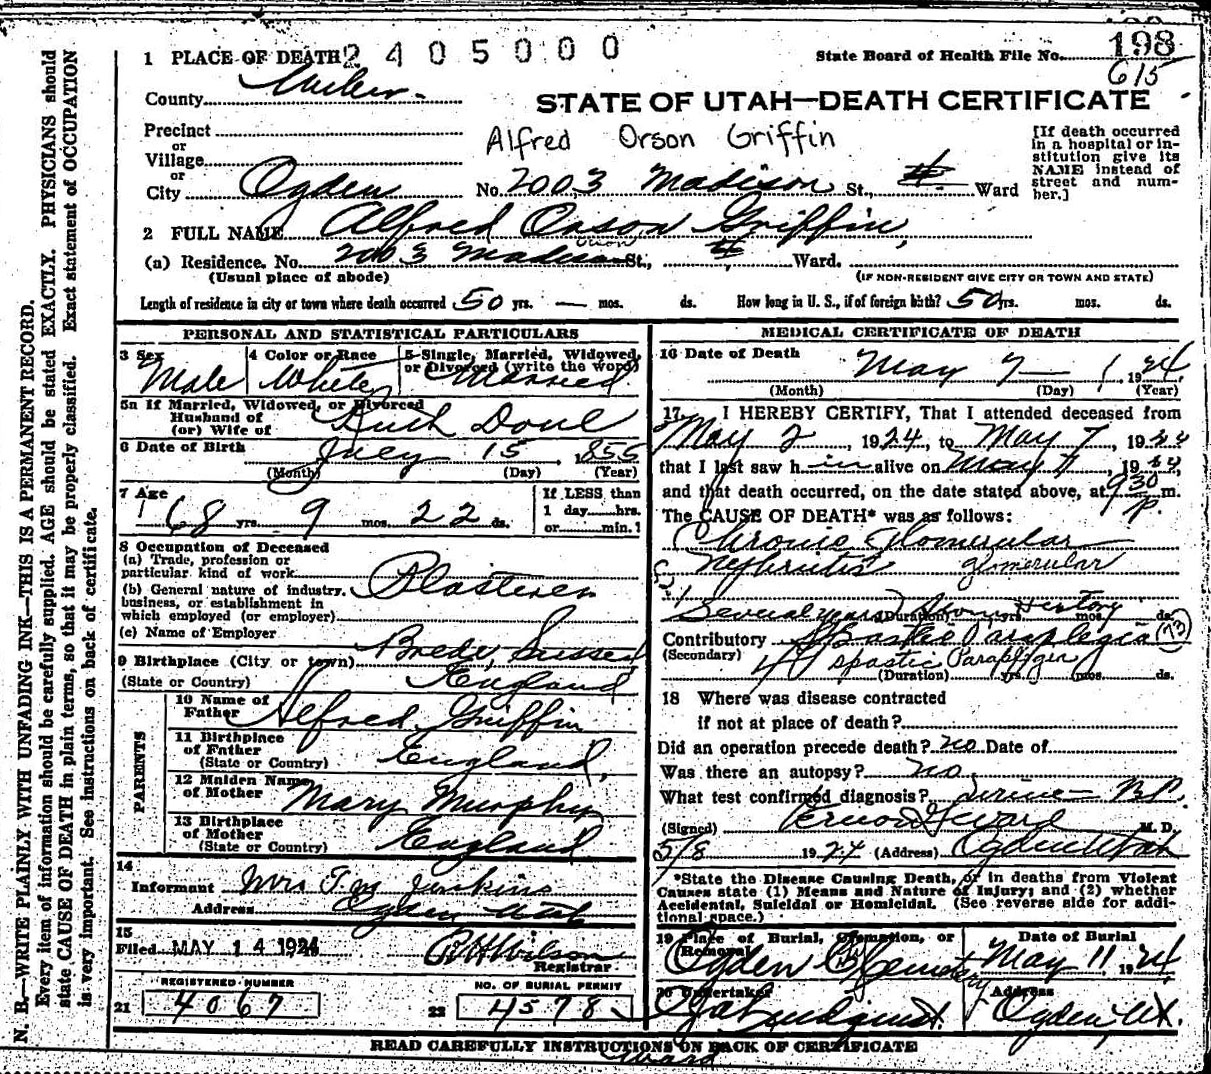 198
1 PLACE OF DEATH 2405000 State Board of Health File No. 615
County Weber
STATE OF UTAH—DEATH CERTIFICATE
Precinct
or
Village
or
Alfred Orson Griffin
[If death occurred in a hospital or in-stitution give its NAME instead of street and num-ber.]
City Ogden No. 2003 Madison St., 4 Ward
2 FULL NAME Alfred Orson Griffin,
Orson
(a) Residence. No. 2003 Madison St., 4 Ward.
(Usual place of abode) (IF NON-RESIDENT GIVE CITY OR TOWN AND STATE)
Length of residence in city or town where death occurred 50 yrs. — mos. ds. How long in U. S., if of foreign birth? 50 yrs. mos. ds.
PERSONAL AND STATISTICAL PARTICULARS
3 Sex 4 Color or Race 5 Single, Married, Widowed, or Divorced (write the word)
Male White Married
5a If Married, Widowed, or Divorced
Husband of
(or) Wife of Ruth
6 Date of Birth July 15, 1855
(Month) (Day) (Year)
7 Age 68 yrs. 9 mos. 22 ds.
If LESS than
1 day hrs.
or min.
8 Occupation of Deceased
(a) Trade, profession or
particular kind of work Plasterer
(b) General nature of industry,
business, or establishment in
which employed (or employer)
(c) Name of Employer
9 Birthplace (City or town) Brede, Sussex
(State or Country) England
PARENTS
10 Name of
Father Alfred Griffin
11 Birthplace
of Father
(State or Country) England,
12 Maiden Name
of Mother Mary Murphy
13 Birthplace
of Mother
(State or Country) England
14
Informant Mrs T. M. Jenkins
Address Ogden Utah
15
Filed MAY 14 1924 Wilson
Registrar
REGISTERED NUMBER NO. OF BURIAL PERMIT
21 4067 22 4578
MEDICAL CERTIFICATE OF DEATH
16 Date of Death May 7— 1924
(Month) (Day) (Year)
17 I HEREBY CERTIFY, That I attended deceased from
May 2, 1924, to May 7, 1924
that I last saw him alive on May 7, 1924,
and that death occurred, on the date stated above, at 9 30 p. m.
The CAUSE OF DEATH* was as follows:
Chronic Glomerular
Nephritis glomerular
Several years from History
(Duration) yrs. mos. ds.
Contributory Spastic Paraplegia (73)
(Secondary) spastic
(Duration) yrs. mos. ds.
18 Where was disease contracted
if not at place of death?
Did an operation precede death? no Date of
Was there an autopsy? no
What test confirmed diagnosis? Urine — B.P.
(Signed) Vernon Ward M. D.
5/8 1924 (Address) Ogden Utah
*State the Disease Causing Death, or in deaths from Violent
Causes state (1) Means and Nature of Injury; and (2) whether
Accidental, Suicidal or Homicidal. (See reverse side for addi-
tional space.)
19 Place of Burial, Cremation, or Removal Date of Burial
Ogden C Cemetery May 11 1924
20 Undertaker Address
Lindquist. Ogden, Ut.
READ CAREFULLY INSTRUCTIONS ON BACK OF CERTIFICATE
Ward
N. B.—WRITE PLAINLY WITH UNFADING INK—THIS IS A PERMANENT RECORD.
Every item of information should be carefully supplied. AGE should be stated EXACTLY. PHYSICIANS should
state CAUSE OF DEATH in plain terms, so that it may be properly classified. Exact statement of OCCUPATION
is very important. See instructions on back of certificate.